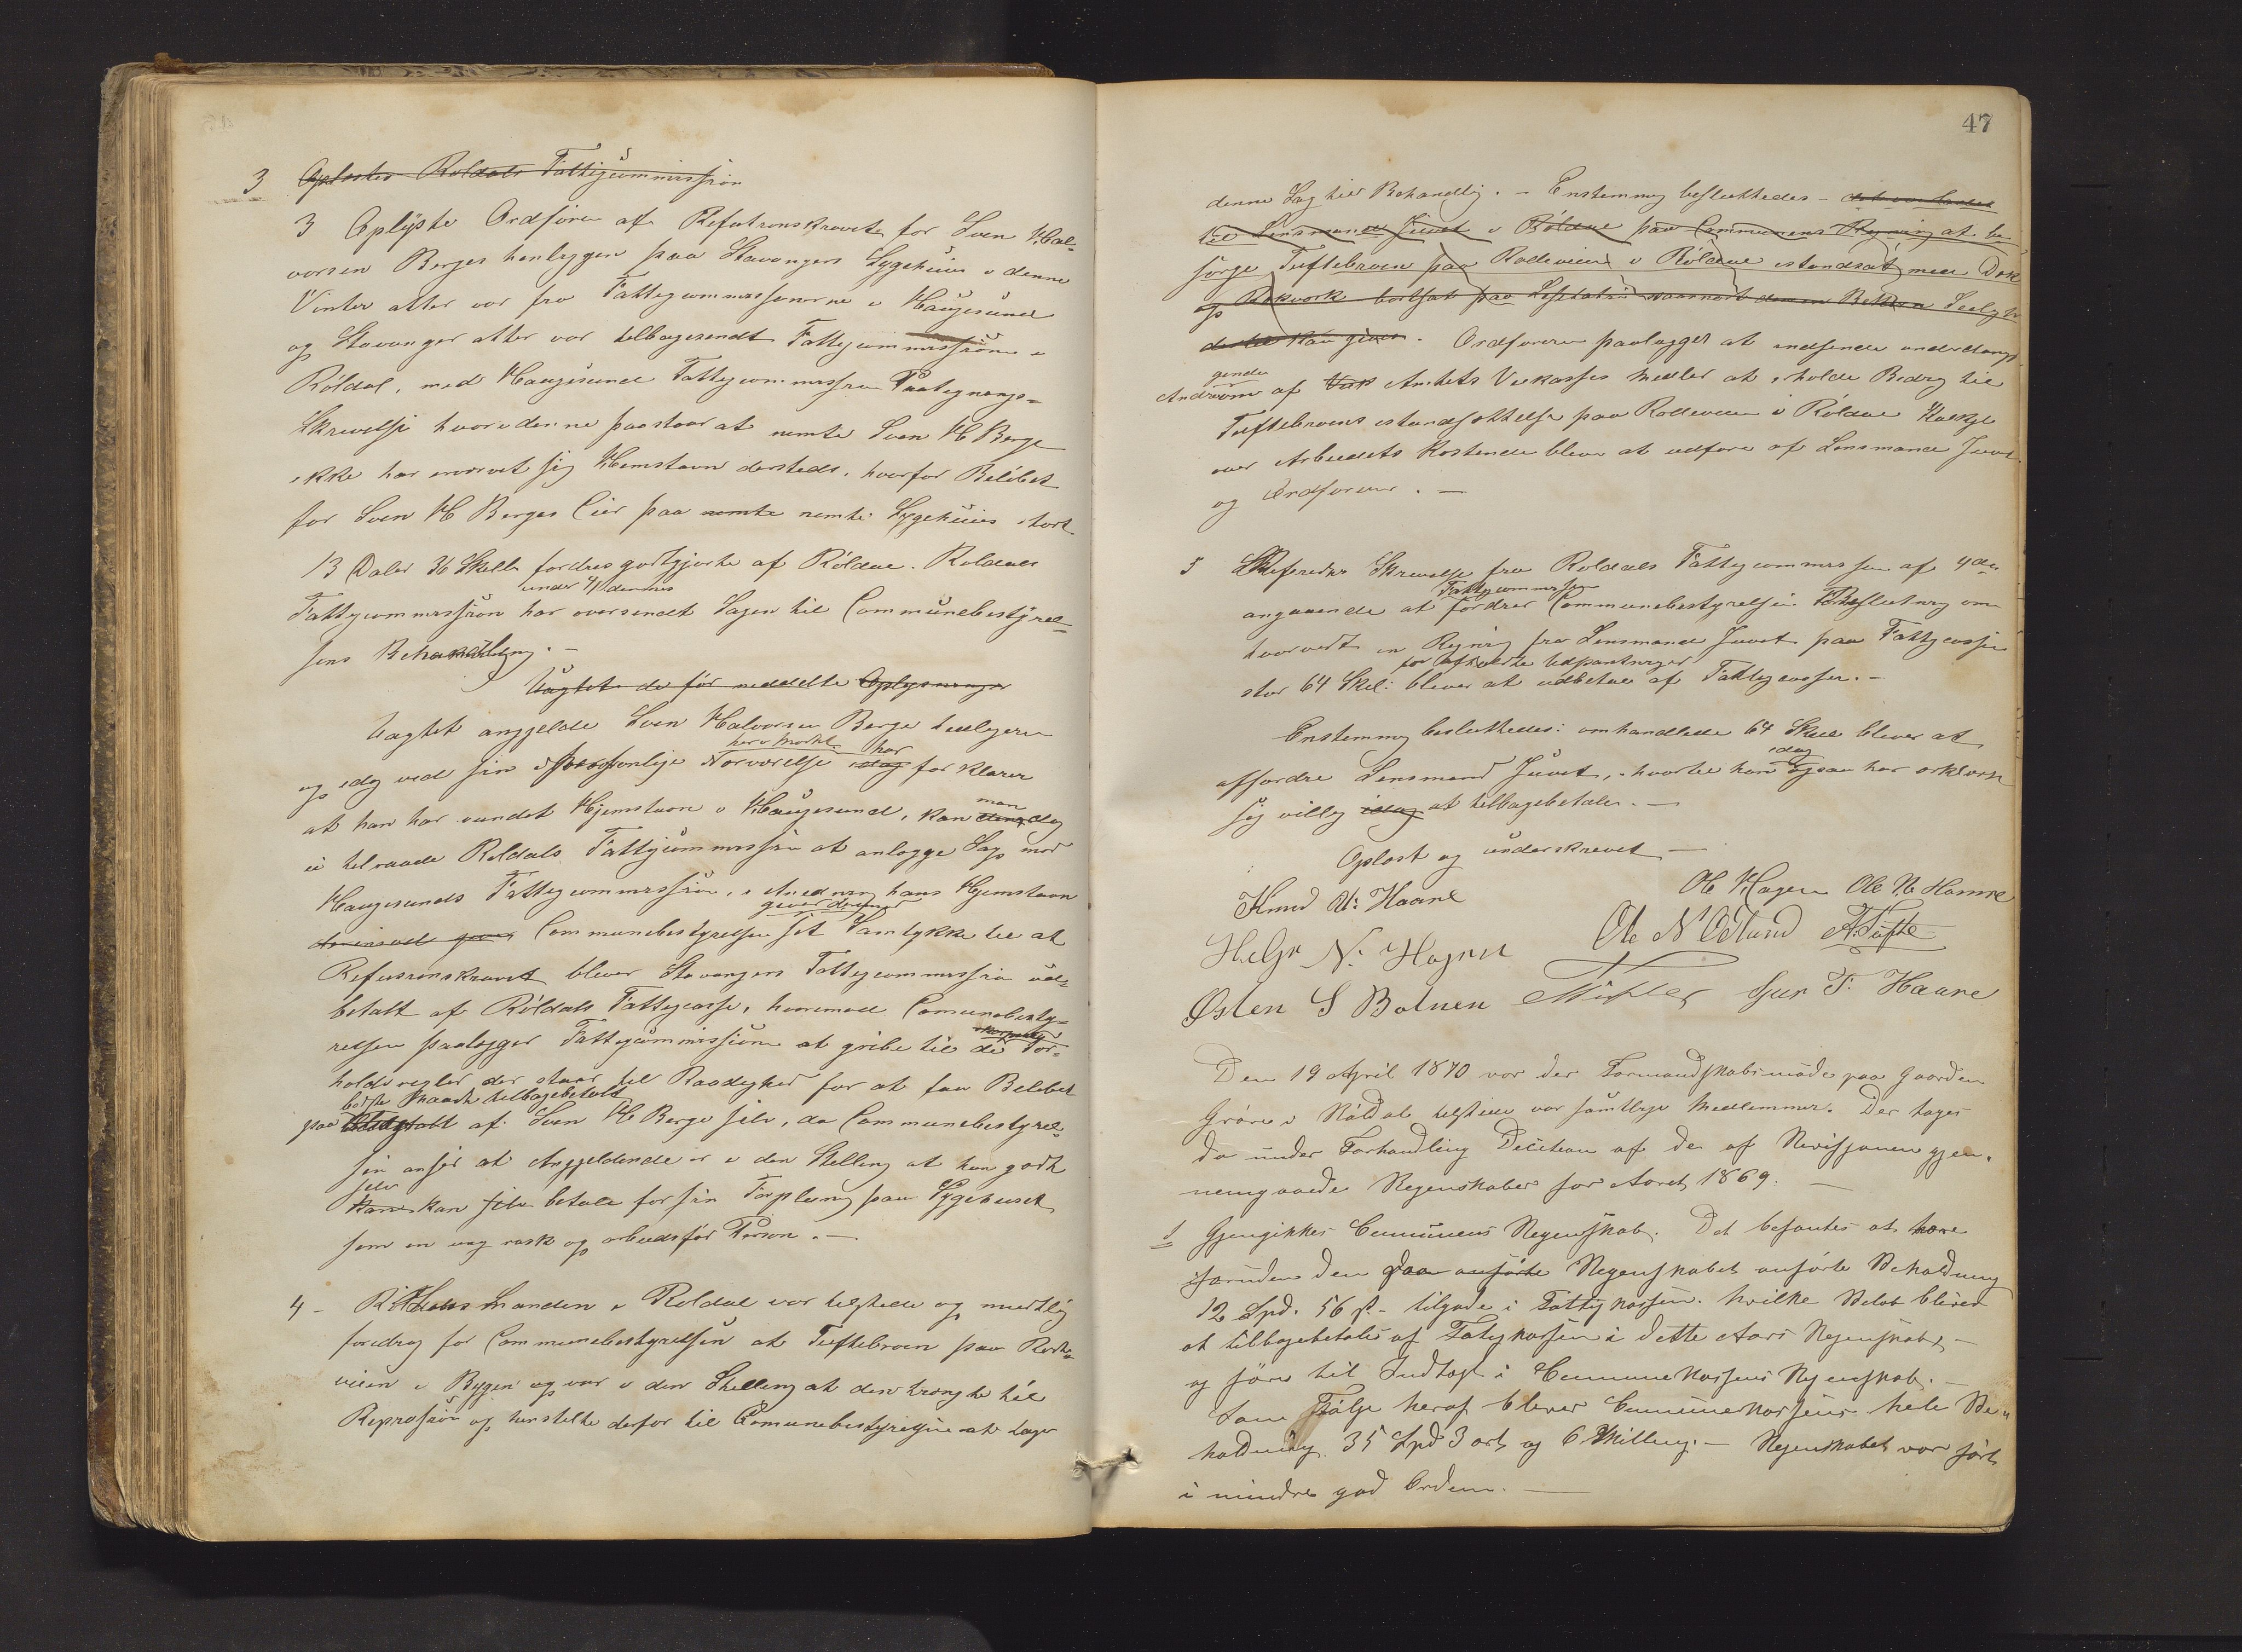 3 Oplæstes Roldals Fattigcommission
3 Oplyste Ordføren at Refutionskravet for Sven Hal-
vorsen Berges henliggen paa Stavangers Sygehuus i denne
Vinter atter var fra Fattigcommissionerne i Haugesund
og Stavanger atter var tilbagesendt Fattigcommissionen i
Røldal, med Haugesund Fattigcommission Paategnings-
Skrivelse hvori denne paastaar at nemte Sven H Berge
ikke har ervervet sig Hemstavn dersteds, hvorfor Beløbet
for Sven H Berges Cur paa nemte nemte Sygehuus stort
13 Daler 36 Skill. fordres godtgjorte af Røldal. Roldals
under 4/1 dennes
Fattigcommission har oversendt Sagen til Communebestyrel-
sens Behandling. —
Uagtet de før meddelte Oplysninger
Uagtet angjelde Sven Halvorsen Berge tidligere
her i Mødet har
og idag ved sin personlige Nærværelse idag forklarer
man
at han har vundet Hjemstavn i Haugesund, kan den dog
ei tilraade Roldals Fattigcommission at anlægge Sag mod
Haugesunds Fattigcommission, i Anledning hans Hjemstavn
giver derfor
Communebestyrelsen sit Samtykke til at
Refusionskravet bliver Stavangers Fattigcommission ud-
betalt af Røldals Fattigcasse, hvorimod Comunebesty-
relsen paalægger Fattigcommissionen at gribe til de For-
holdsregler der staar til Raadighed for at faa Beløbet
bedste Maade tilbagebetalt
paa af Sven H Berge selv, da Communebestyrel-
sen anser at Angjeldende er i den Stilling at han godt
selv
kan kan selv betale for sin Forpleining paa Sygehuset
som en ung rask og arbeidsfør Person. —
4 - Lensmanden i Roldal var tilstede og mundtlig
foredrog for Communebestyrelsen at Tuftebroen paa Rode-
veien i Bygen og var i den Stilling at den trængte til
Reprasion og henstilte derfor til Comunebestyrelsen at tage
47
denne Sag til Behandlig. — Enstemmig besluttedes — det overlades
til Lensmand Juvet i Røldal paa Communens Regning at be-
sørge Tuftebroen paa Rodeveien i Røldal istandsat med Dæk
og Rækværk bortsat paa Lisitation naarnest dennem Bekken Leilig-
dertil kan gives. Ordføreren paalagges at indsende andragende
gende
Andragende om af Amtets Veikasses Midler at erholde Bidrag til
Tuftebroens istandsættelse paa Rodeveien i Røldal Kalkyle
over Arbeidets Kostende bliver at udføre af Lensmand Juvet
og Ordføreren. —
5 Refereredes Skrivelse fra Roldals Fattigcommission af 4de
Fattigcommission
angaaende at fordrer Communebestyrelsen Beslutning om
hvorvidt en Regning fra Lensmand Juvet paa Fattigcassen
for afholdte Udpantninger
stor 64 Skil: bliver at udbetale af Fattigcassen. —
Enstemmig besluttedes: omhandlede 64 Skill bliver at
idag
affordre Lensmand Juvet, hvortil han ogsaa har erklært
sig villig idag at tilbagebetale. —
Oplæst og underskrevet —
Knud At: Haare
O Hagen Ole N. Hamre
Helge N. Hagen
Ole N Øtlund A. Tufte
Østen S Botnen Sjur T. Haare
Den 19 April 1870 var der Formandskabsmøde paa Gaarden
Grøne i Røldal tilstede var samtlige Medlemmer. Der toges
da under Forhandling Decition af de af Revisjonen gjen-
nemgaaede Regenskaber for Aaret 1869. —
1 Gjengikkes Communens Regenskab. Det befantes at have
foruden den paa anførte Regenskabet anførte Beholdning
12 Spd. 56 s. — tilgode i Fattigkassen. hvilke Beløb bliver
at tilbagebetales af Fatigkassen i dette Aars Regenskab, —
og føres til Indtægt i Communekassens Regenskab. —
Som Følge heraf bliver Communekassens hele Be-
holdning 35 Spd 3 ort og 6 Skilling. — Regenskabet var ført
i mindre god Orden. —